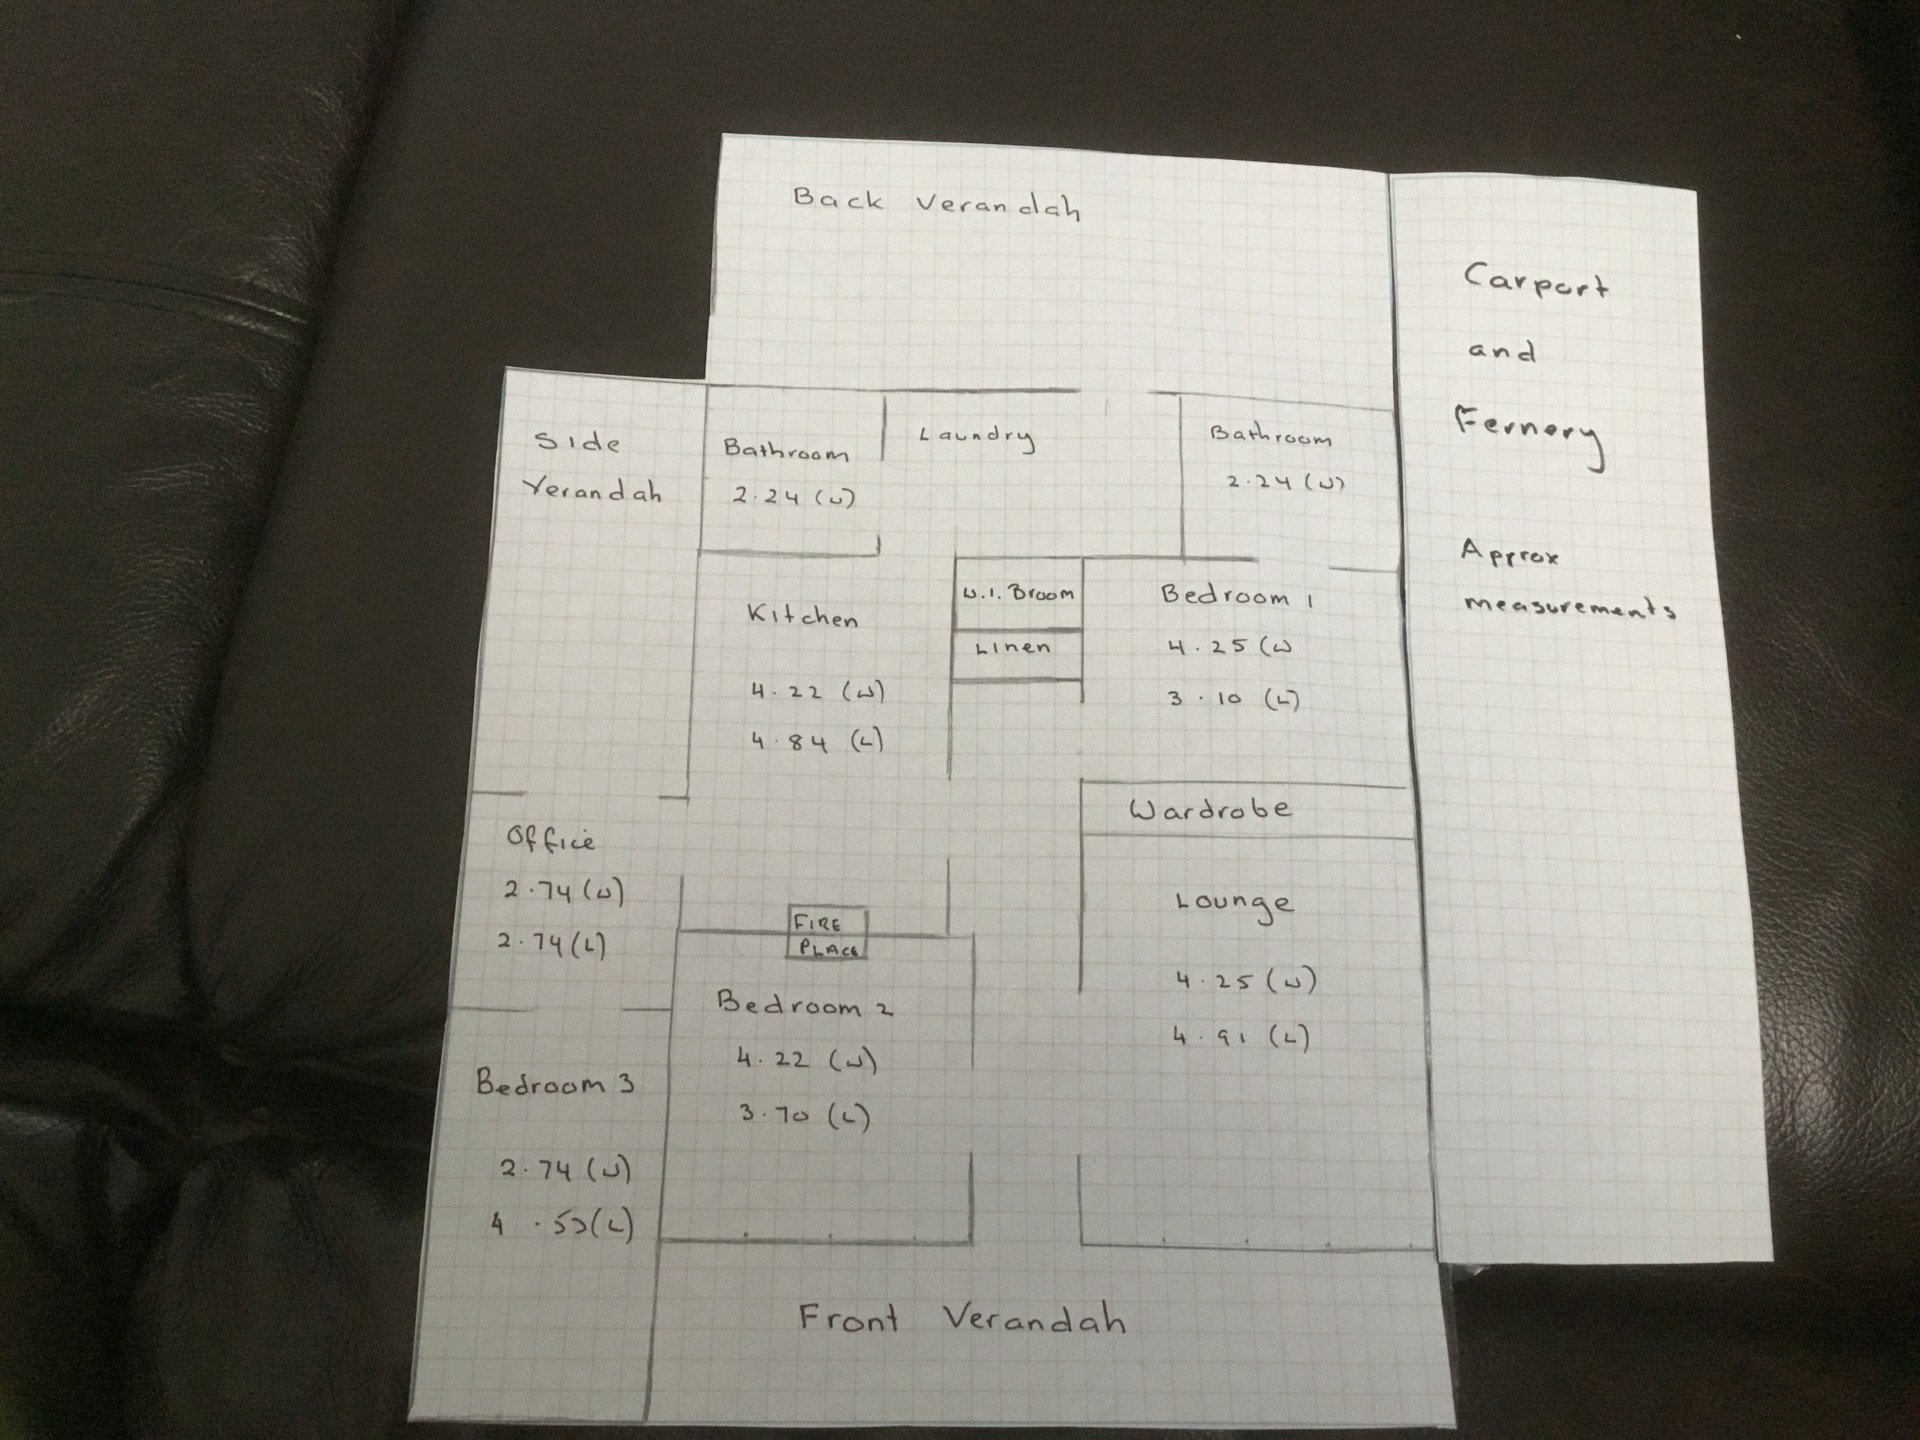 Back Verandah
Carport
and
Fernery
Approx
measurements
Side
Verandah
Bathroom
2.24 (W)
Laundry
Bathroom
2.24 (W)
Kitchen
4.22 (W)
4.84 (L)
W.I. Broom
Linen
Bedroom 1
4.25 (W
3.10 (L)
Wardrobe
Office
2.74 (W)
2.74 (L)
FIRE
PLACE
Lounge
4.25 (W)
4.91 (L)
Bedroom 2
4.22 (W)
3.70 (L)
Bedroom 3
2.74 (W)
(L)
Front Verandah